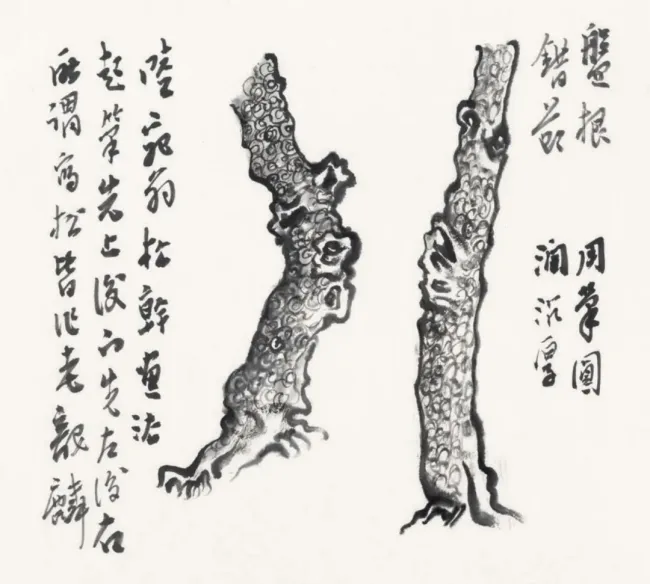 盤根
錯節
用筆圓
潤沉厚
陸宛翁松幹画法
起筆先上後下先左後右
所謂寫松皆作老龍鱗